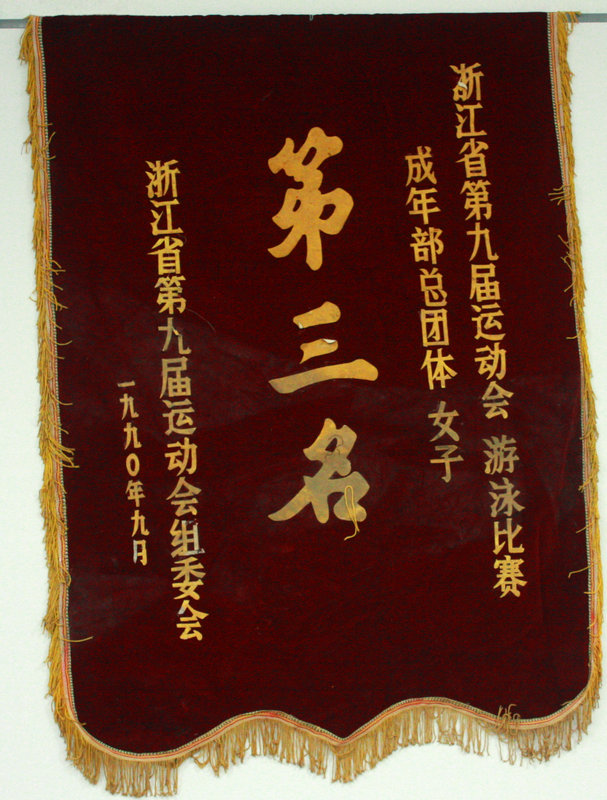 浙江省第九届运动会 游泳比赛
成年部总团体 女子
第三名
浙江省第九届运动会组委会
一九九〇年九月